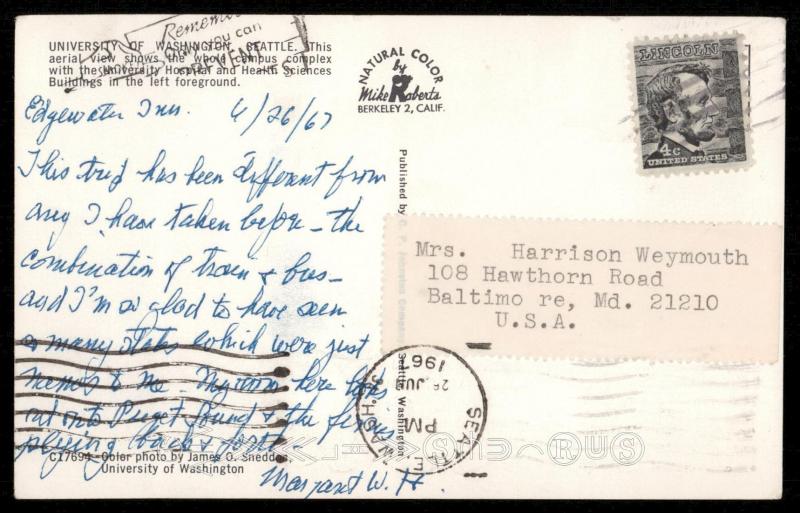 Remember
you can
PREVENT
UNIVERSITY OF WASHINGTON, SEATTLE. This
aerial view shows the whole campus complex
with the University Hospital and Health Sciences
Buildings in the left foreground.
NATURAL COLOR
by
Mike Roberts
BERKELEY 2, CALIF.
LINCOLN
4c
UNITED STATES
Edgewater Inn. 6/26/67
This trip has been different from
any I have taken before - the
combination of train & bus -
and I'm so glad to have seen
so many states which were just
names to me. My room here looks
out onto Puget Sound & the ferries
plying back & forth.
Margaret W. H.
Published by C. P. Johnston Company, Seattle, Washington
Mrs. Harrison Weymouth
108 Hawthorn Road
Baltimo re, Md. 21210
U.S.A.
SEATTLE
WASH
PM
26 JUN
196
C17694-Color photo by James O. Sneddon
University of Washington